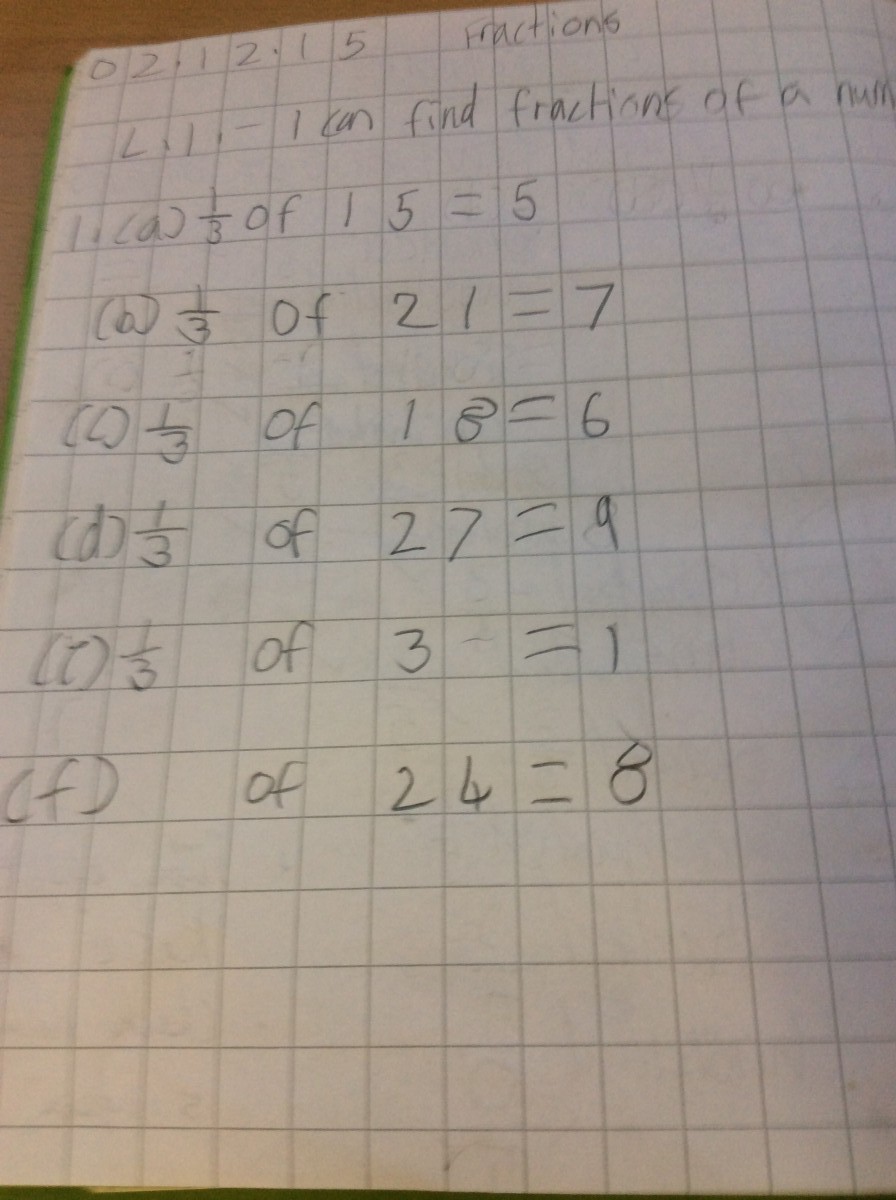 02.12.15 Fractions
L.I. - I can find fractions of a num
1. (a) 1/3 of 15 = 5
(b) 1/3 of 21 = 7
(c) 1/3 of 18 = 6
(d) 1/3 of 27 = 9
(e) 1/3 of 3 = 1
(f) of 24 = 8